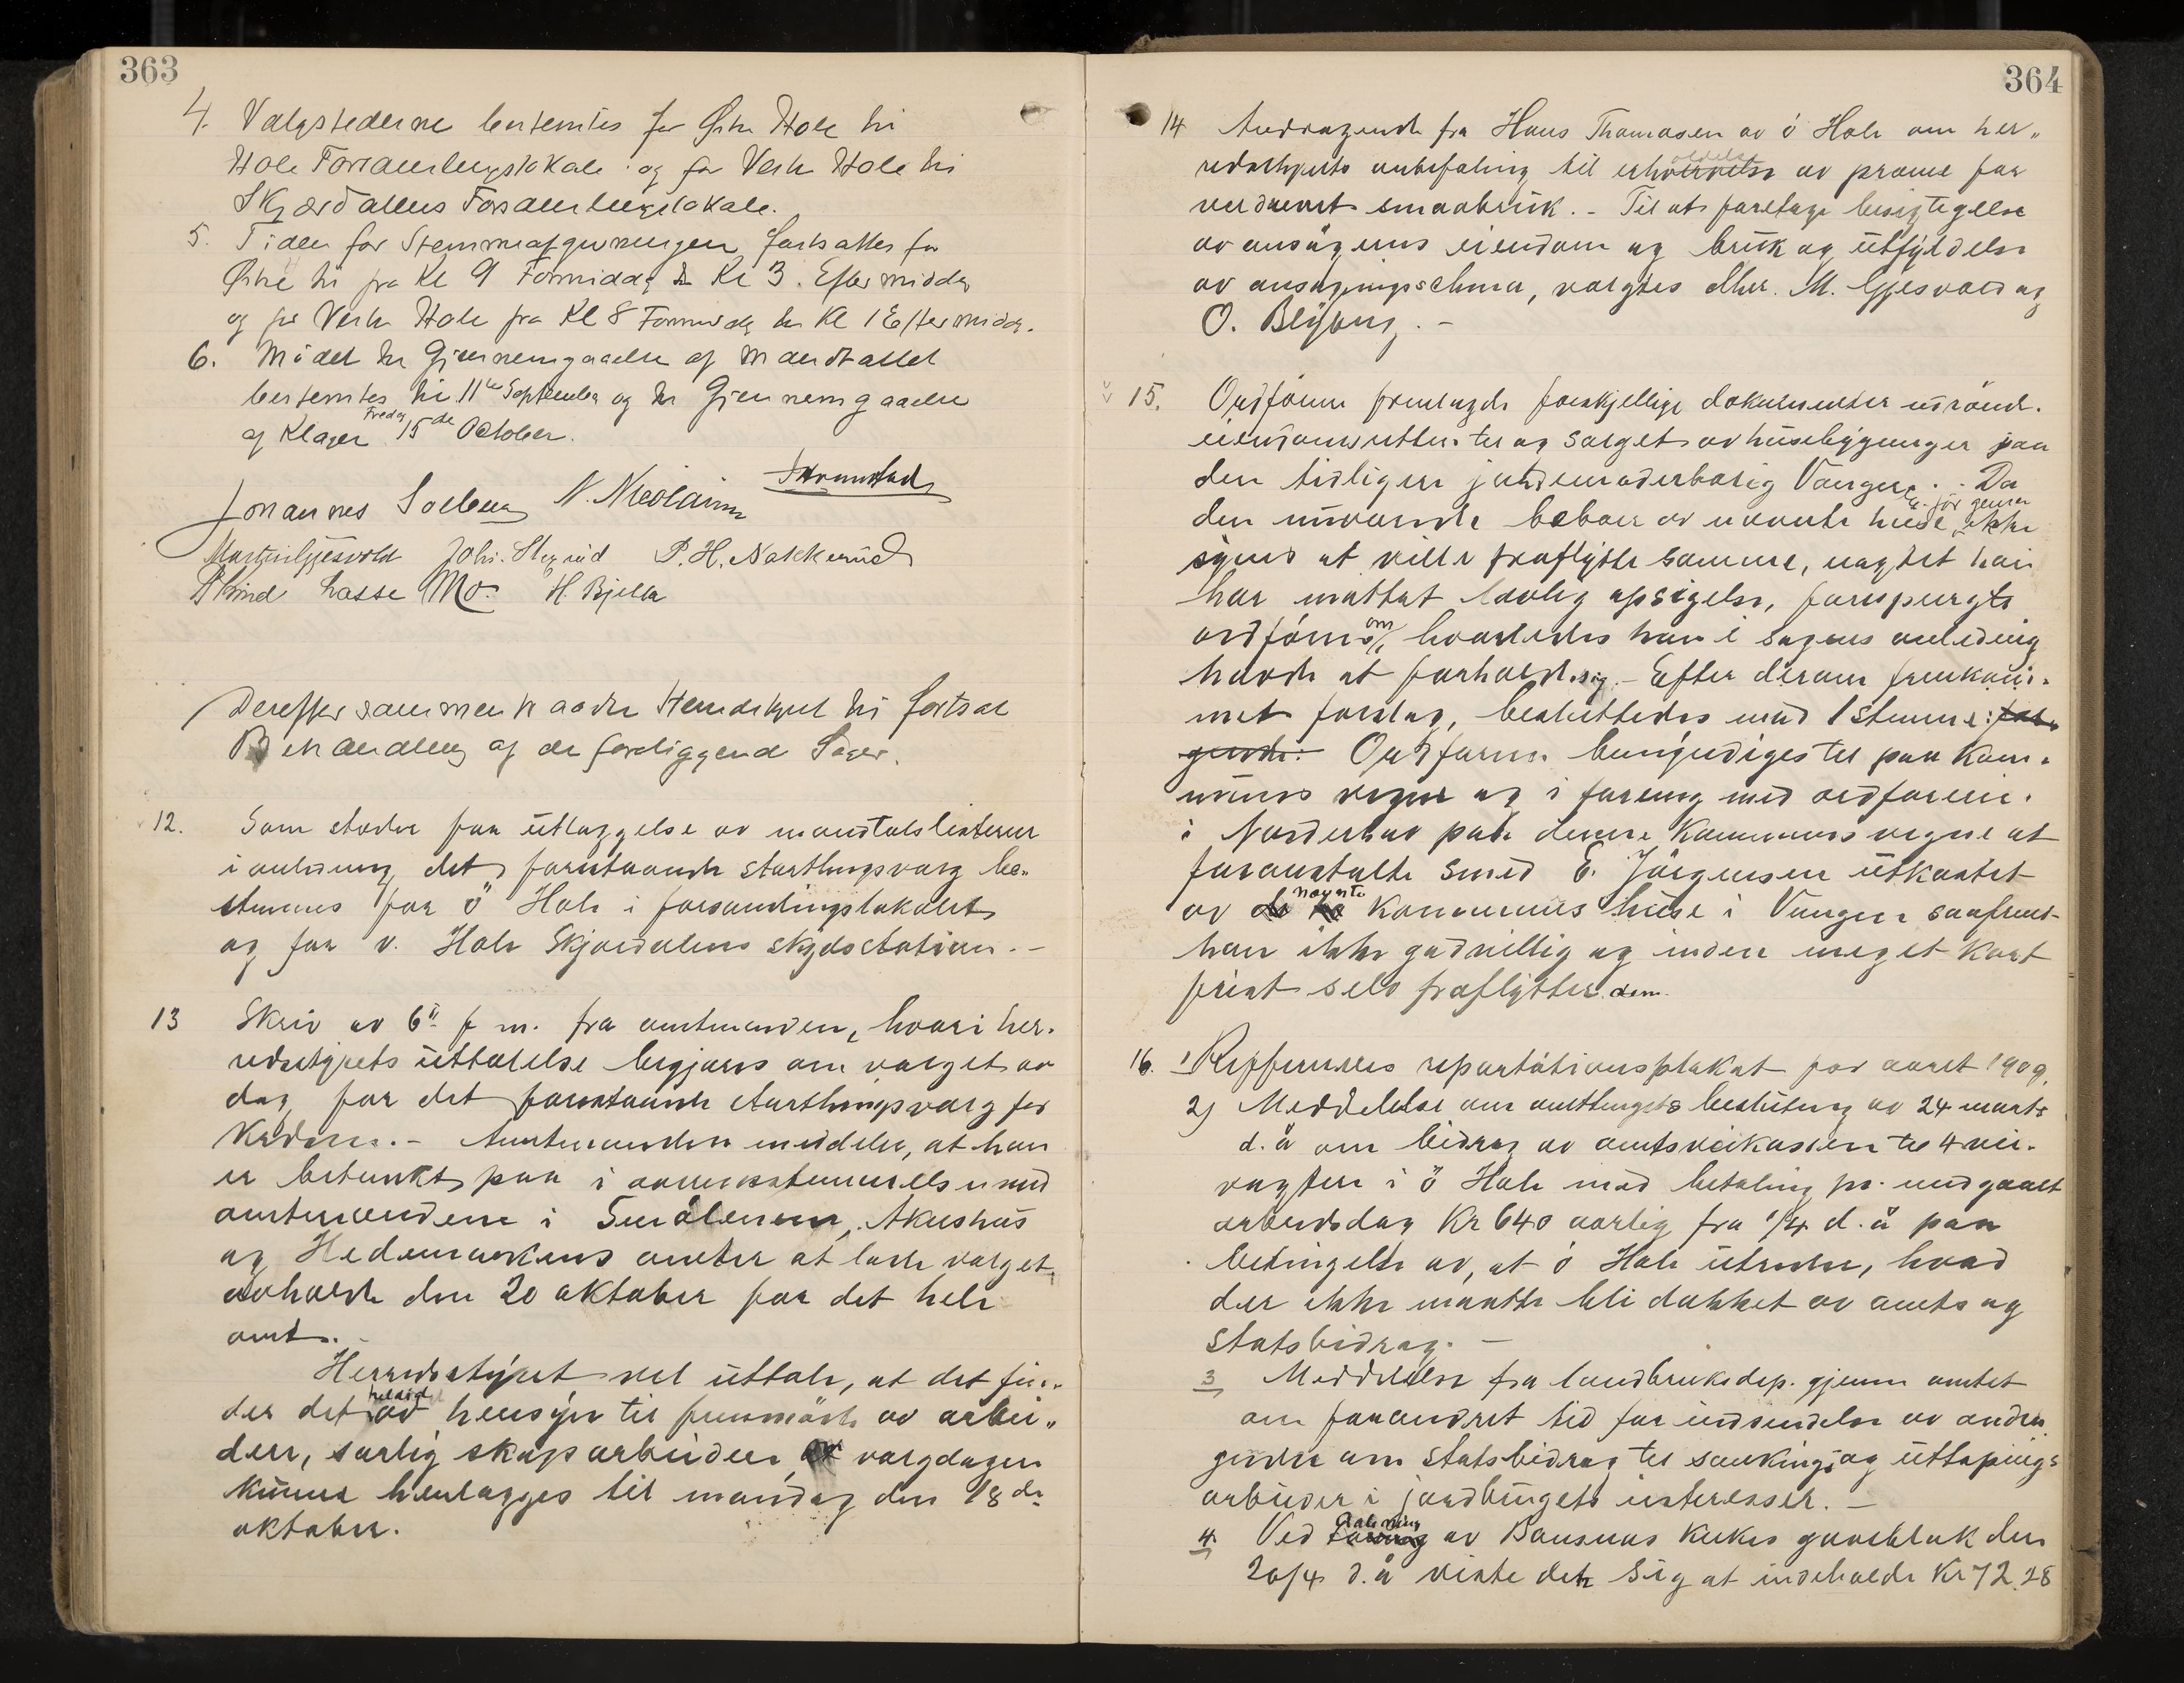 363
4. Valgstederne bestemtes for Østre Hole til
Hole Forsamlingslokale og for Vestre Hole til
Skjærdalens Forsamlingslokale.
5. Tiden for Stemmeafgivningen fortsattes for
Østre til fra Kl 9 Formiddag til Kl 3. Eftermiddag
og for Vestre Hole fra Kl 8 Formidag til Kl 1 Eftermidag.
6. Mödet til Gjennemgaaelse af Mandtallet
bestemtes til 11te September og til Gjennemgaaelse
af Klager Fredag 15de October.
Johannes Solberg N. Nicolaisen
Martin Gjesvold Johs. Stegrud P. H. Nakkerud
Lasse Mo. H. Bjella
Derefter sammentraadte Herredstyret til fortsat
Behandling af de foreliggende Sager.
12. Som steder for utlæggelse av mandtalslisterne
i anledning det forestaaende starthingsvalg be„
stemmes for ö Hole i forsamlingslokalet
og for v. Hole Skjærdalens skydsstation. –
13 Skriv av 6te f m. fra amtmanden, hvori her„
redstyrets üttalelse begjæres om valget av
dag for det forestaaende starthingsvalg for
Kredsen. – Amtmanden meddeler, at han
er betænkt paa i overensstemmelse med
amtmændene i Smålenene, Akushus
og Hedemarkens amter at lade valget
avholde den 20 oktober for det hele
amt. –
Herredsstyret vil üttale, at det fin„
der det av hensyn til fremmöde av arbei„
dere, særlig skogsarbeidere, valgdagen
kunne henlægges til mandag den 18de
oktober.
364
14 Andragende fra Hans Thomasen av ö Hole om her„
redsstyrets anbefaling til erholdelse av præmie for
veldrevet smaabrük. – Til at foretage besigtigelse
av ansögerens eiendom og brük og ütfyldelse
av ansögningsschema, valgtes dhrr. M. Gjesvold og
O. Blyberg. –
15. Ordförer fremlagde forskjellige dokumenter vedrörende.
eiendomsretten til og salget av hüsebygninger paa
den tidligere jordemoderbolig Vangen. – Da
den nüværende beboer av nævnte hüse ikke
synes at ville fraflytte samme, uagtet han
har mottat lovlig opsigelse, forespurgte
ordföreren om hvorledes han i sagens anledning
havde at forholde sig. – Efter derom fremkom„
met forslag, besluttedes med 1 stemme:
Ordföreren bemyndiges til paa Kom„
munens vegne og i forening med ordföreren
i Norderhov paa denne Kommunes vegne at
foranstalte smed E. Jörgensen ütkastet
av nævnte Kommunes hüse i Vangen saafremt
han ikke godvillig og inden meget kort
frist selv fraflytter dem.
16. 1 Refferertes repartitionsplakat for aaret 1909.
2) Meddelelse om amtthingets beslütning av 24 marts
d. å om bidrag av amtsveikassen til 4 vei„
vogtere i ö Hole med betaling pr. medgaaet
arbeidsdag Kr 640 aarlig fra 1/4 d. å paa
betingelse av, at ö Hole ütreder, hvad
der ikke maatte bli dækket av amts og
statsbidrag. –
3 Meddelelse fra landbruksdep. gjennem amtet
om forandret tid for indsendelse av andra
gender om statsbidrag til sænknings og üttapnings
arbeider i jordbrugets interesser. –
4. Ved aabning av Bönsnes Kirkes gaveblok den
20/4 d. å viste det sig at indeholde Kr 72.28